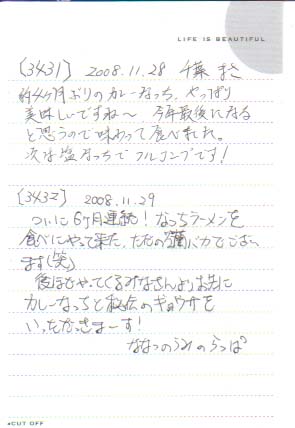 LIFE IS BEAUTIFUL
[3431] 2008.11.28 千葉 まさ
約4ヶ月ぶりのカレーなっち、やっぱり
美味しいですね〜 今年最後になる
と思うので味わって食べました。
次は塩なっちでフルコンプです!
[3432] 2008.11.29
ついに6ヶ月連続! なっちラーメンを
食べにやって来た、ただの バカでござい
ます(笑)
後ほどやってくるみなさんよりお先に
カレーなっちと秘伝のギョウザを
いっただっきまーす!
ななつのうみのらっぱ
CUT OFF